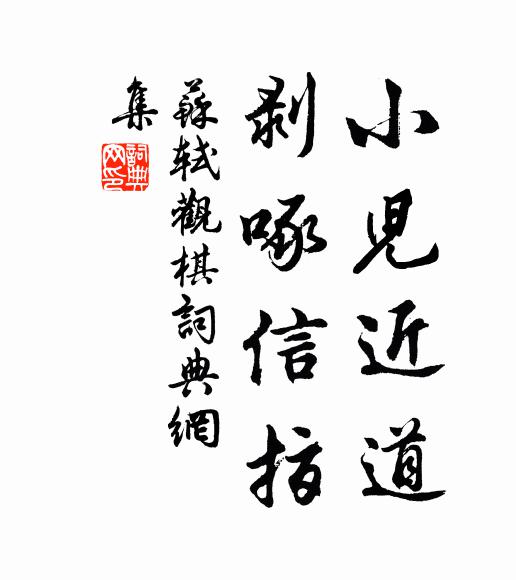 小兒近道
剥啄信指
蘇軾觀棋詞典網
集
詞典
网印